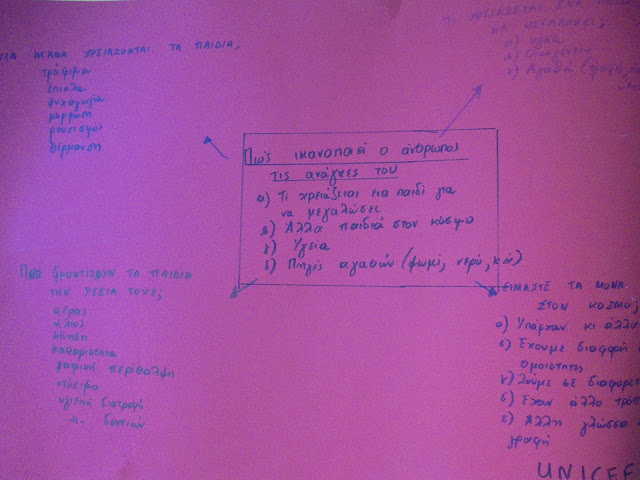 ΠΟΙΑ ΑΓΑΘΑ ΧΡΕΙΑΖΟΝΤΑΙ ΤΑ ΠΑΙΔΙΑ;
τρόφιμα
έπιπλα
ψυχαγωγία
μόρφωση
ρουχισμός
θέρμανση
ΤΙ ΧΡΕΙΑΖΕΤΑΙ ΕΝΑ
ΝΑ ΜΕΓΑΛΩΣΕΙ;
α) υγεία
β) Οικογένεια
γ) Αγαθά (τροφή,
Πώς ικανοποιεί ο άνθρωπος
τις ανάγκες του
α) Τι χρειάζεται ένα παιδί για
να μεγαλώσει
β) Άλλα παιδιά στον κόσμο
γ) Υγεία
δ) Πηγές αγαθών (ψωμί, νερό, κ.ά)
ΠΩΣ ΦΡΟΝΤΙΖΟΥΝ ΤΑ ΠΑΙΔΙΑ
ΤΗΝ ΥΓΕΙΑ ΤΟΥΣ;
αέρας
ήλιος
κίνηση
καθαριότητα
ιατρική περίθαλψη
ντύσιμο
υγιεινή διατροφή
-//- δοντιών
ΕΙΜΑΣΤΕ ΤΑ ΜΟΝΑ
ΣΤΟΝ ΚΟΣΜΟ;
α) Υπάρχουν κι άλλα
β) Έχουμε διαφορές
ομοιότητες
γ) Ζούμε σε διαφορετ
δ) Έχουν άλλο τρόπ
ε) Άλλη γλώσσα
γραφή
UNICEF